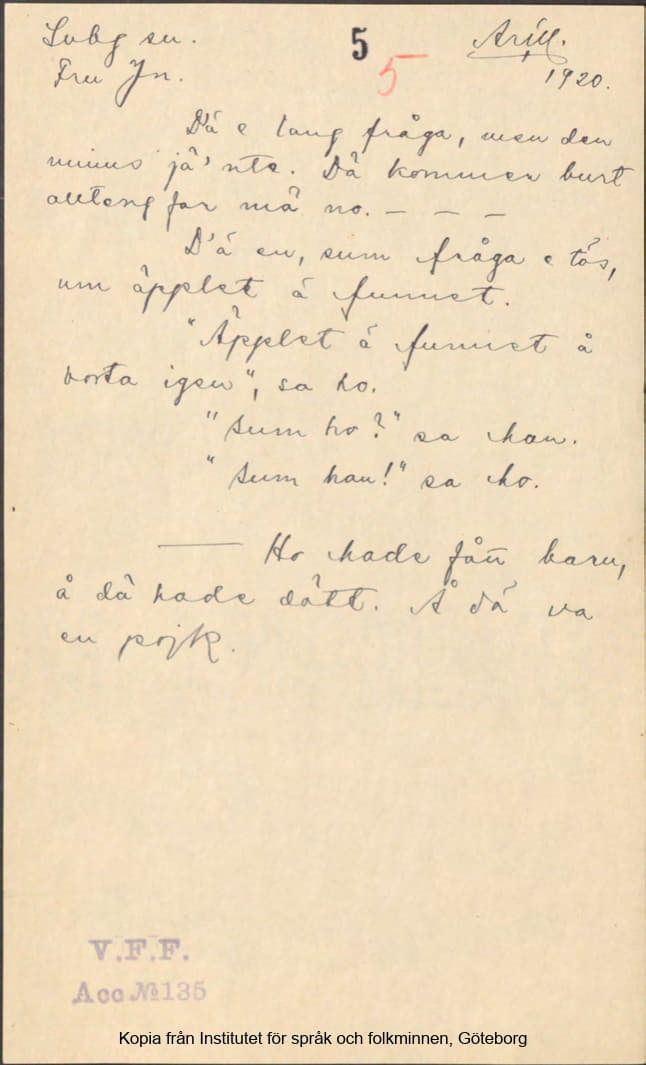 Svbg sn.
5
Arill.
Fru Jn.
5
1920.
D'ä e lang fråga, men den
minns jä' nte. Dä kommer burt
allteng får mä no. — — —
D'ä en, sum fråga e täs,
um äpplet ä funnet.
"Äpplet ä funnet å
borta igen", sa ho.
"Sum ho?" sa han.
"Sum han!" sa ho.
— Ho hade fån barn,
å dä hade dött. Å dä va
en pojk.
V.F.F.
Acc № 135
Kopia från Institutet för språk och folkminnen, Göteborg